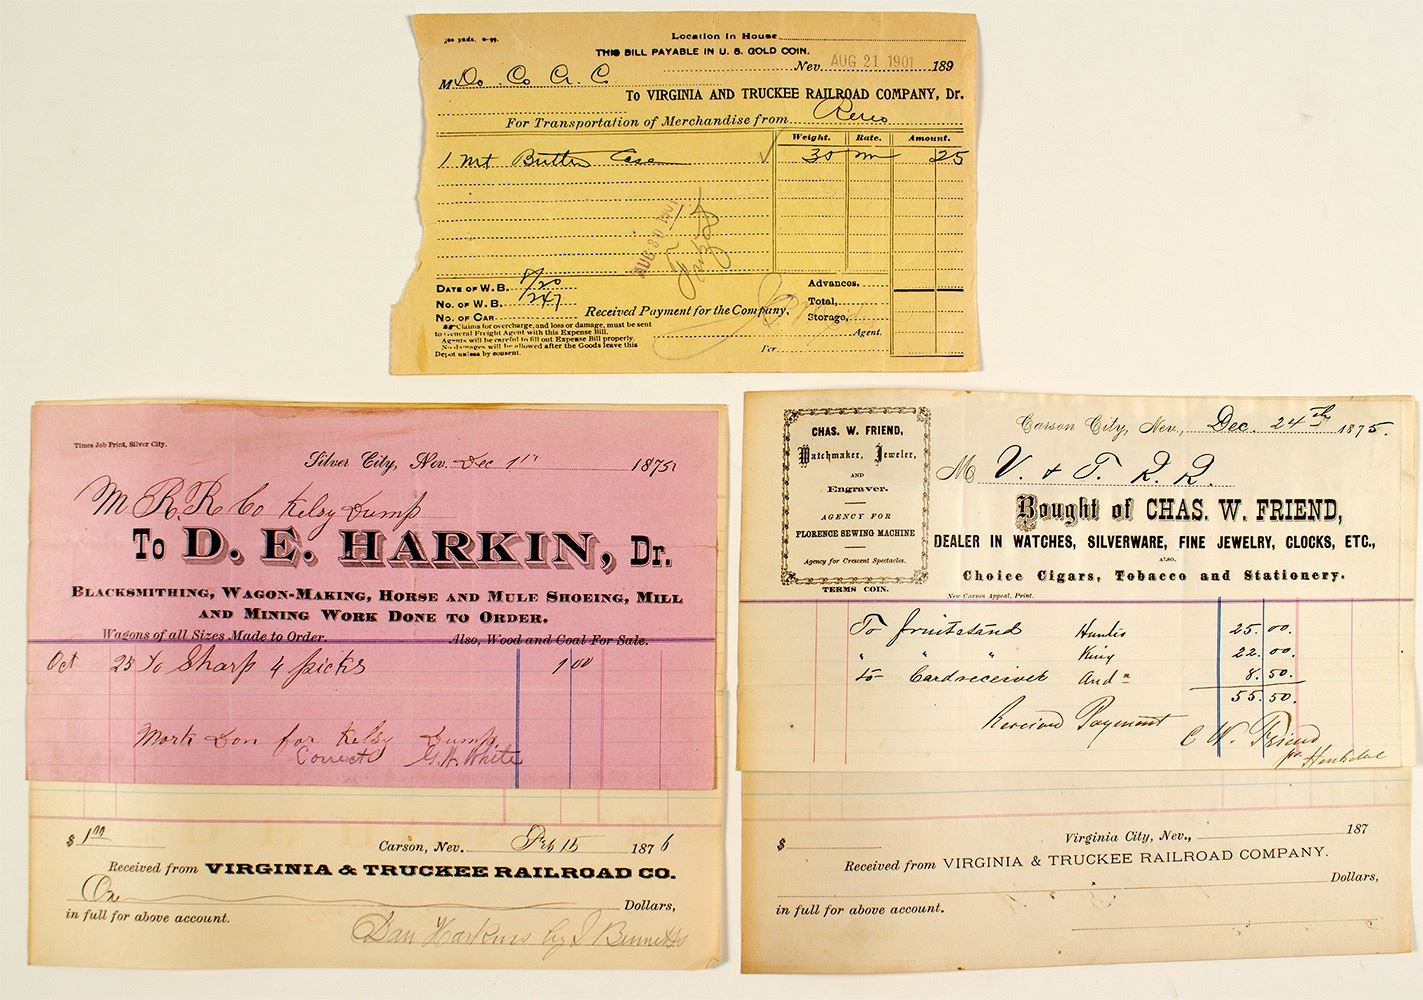 Location in House
THIS BILL PAYABLE IN U. S. GOLD COIN.
Nev. AUG 21 1901 189
M Do. Co Cr. Co
To VIRGINIA AND TRUCKEE RAILROAD COMPANY, Dr.
For Transportation of Merchandise from Reno
Weight. Rate. Amount.
1 Mt Butter Case 30 m 25
AUG 30 1901
DATE OF W. B. 8/20
No. OF W. B. 1247
No. OF CAR
Received Payment for the Company,
Advances,
Total,
Storage,
Agent.
Per
Claims for overcharge, and loss or damage, must be sent
to General Freight Agent with this Expense Bill.
Agents will be careful to fill out Expense Bill properly.
No damages will be allowed after the Goods leave this
Depot unless by consent.
Times Job Print, Silver City.
Silver City, Nov. Dec 1st 1875
M R. R Co Kelsy Dump
To D. E. HARKIN, Dr.
BLACKSMITHING, WAGON-MAKING, HORSE AND MULE SHOEING, MILL
AND MINING WORK DONE TO ORDER.
Wagons of all Sizes Made to Order. Also, Wood and Coal For Sale.
Oct 25 to Sharp 4 picks 1 00
Work Don for Kelsy Dump
Correct G. W. White
$ 1 00 Carson, Nev. Feb 15 1876
Received from VIRGINIA & TRUCKEE RAILROAD CO.
One Dollars,
in full for above account.
Dan Harkins by J Bennetts
CHAS. W. FRIEND,
Watchmaker, Jeweler,
AND
Engraver.
AGENCY FOR
FLORENCE SEWING MACHINE
Agency for Crescent Spectacles.
TERMS COIN.
Carson City, Nev., Dec. 24th 1875.
M V. & T. R. R.
Bought of CHAS. W. FRIEND,
DEALER IN WATCHES, SILVERWARE, FINE JEWELRY, CLOCKS, ETC.,
ALSO,
Choice Cigars, Tobacco and Stationery.
New Carson Appeal, Print.
To fruitstand Hunter 25.00.
" " " King 22.00.
to Cardreceiver And 8.50.
55.50.
Received Payment
C W. Friend
pr.
$ Virginia City, Nev., 187
Received from VIRGINIA & TRUCKEE RAILROAD COMPANY.
Dollars,
in full for above account.